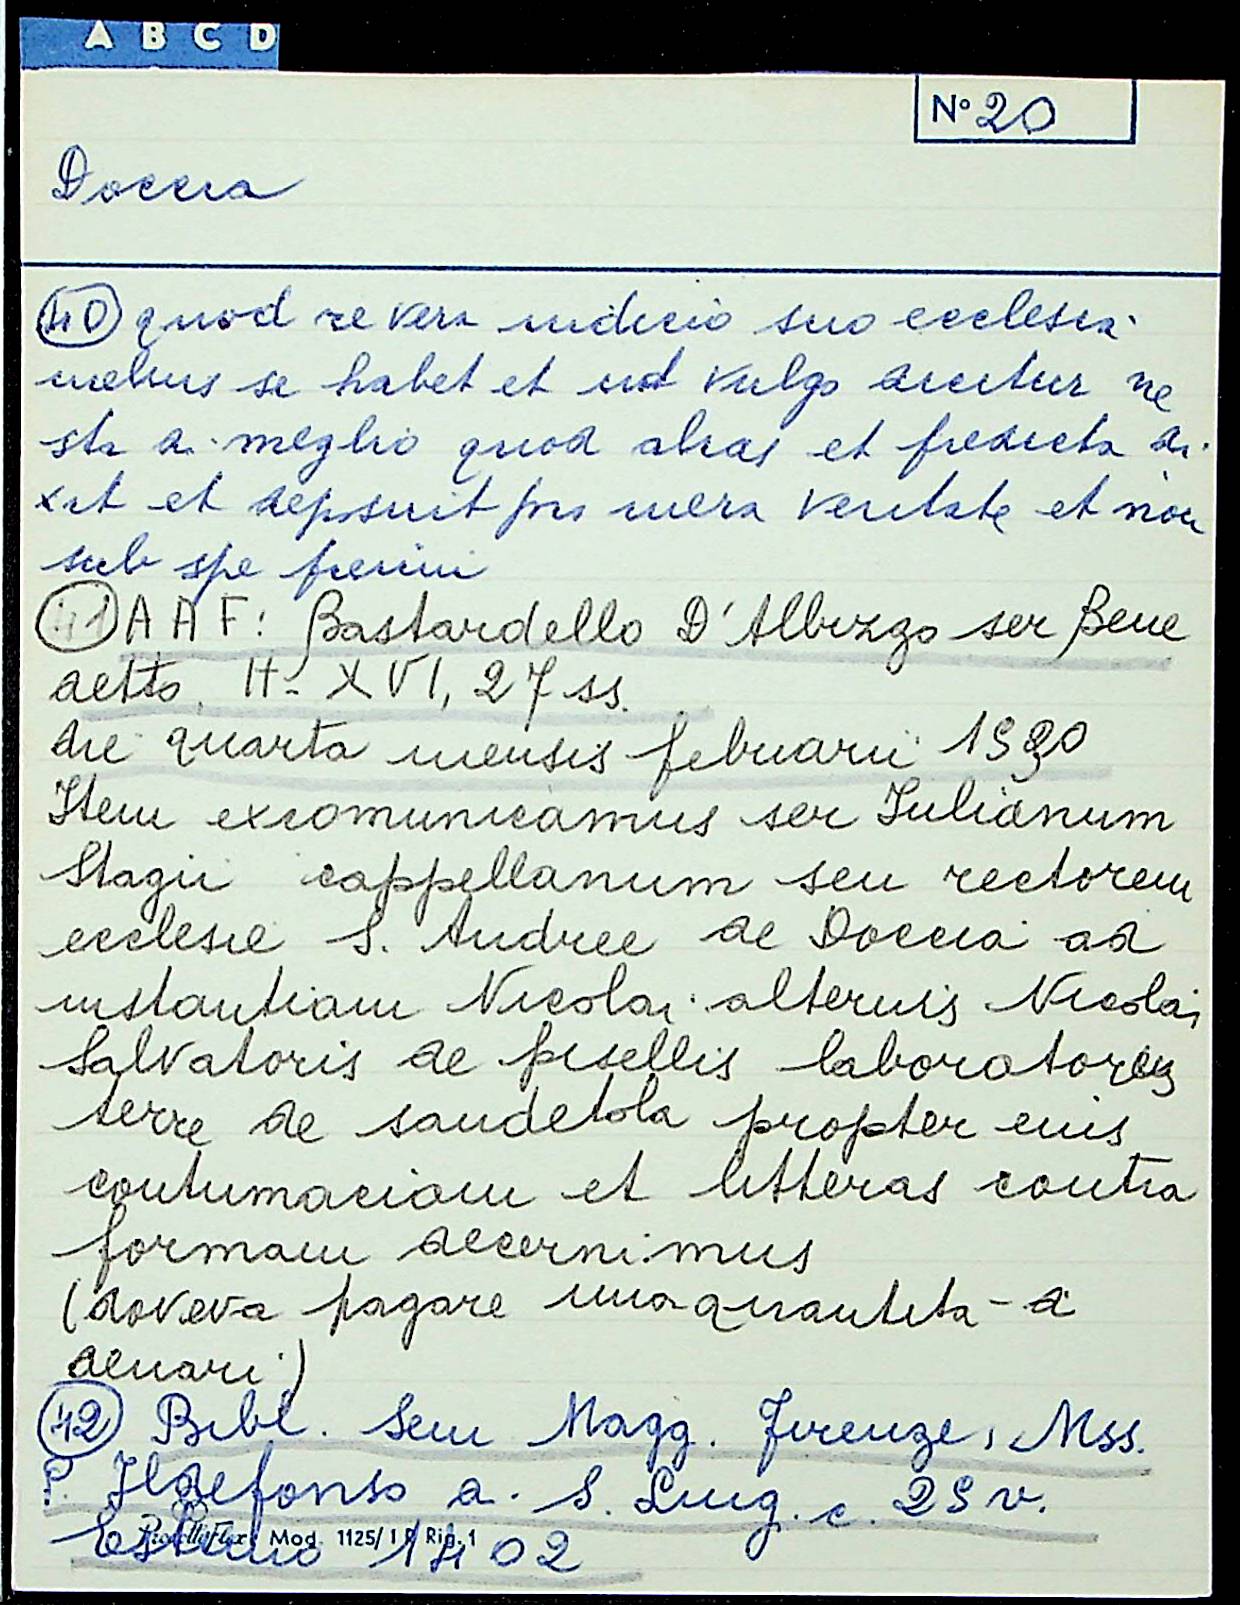 A B C D
N° 20
Doccia
40 quod re vera iudicio suo ecclesia
melius se habet et ut vulgo dicitur ne
sta di meglio quod alias et predicta di
xit et deposuit pro mera veritate et non
sub spe premii
41 A A F: Bastardello D'Albizzo ser Bene
detto, H- XVI, 27 ss.
die quarta mensis februarii
Item excomunicamus ser Iulianum
Stagii cappellanum seu rectorem
ecclesie S. Andree de Doccia ad
instantiam Nicolai alternis Nicolai
Salvatoris de pisellis laboratores
terre de sandetola propter eius
contumaciam et litteras contra
formam decernimus
(doveva pagare una quantità d
denari)
42 Bibl. Sem Magg. Firenze, Mss.
P. Ildefonso d. S. Luig. c. 29 v.
Estimo 1402
Mod. 1125/ I R Rig. 1